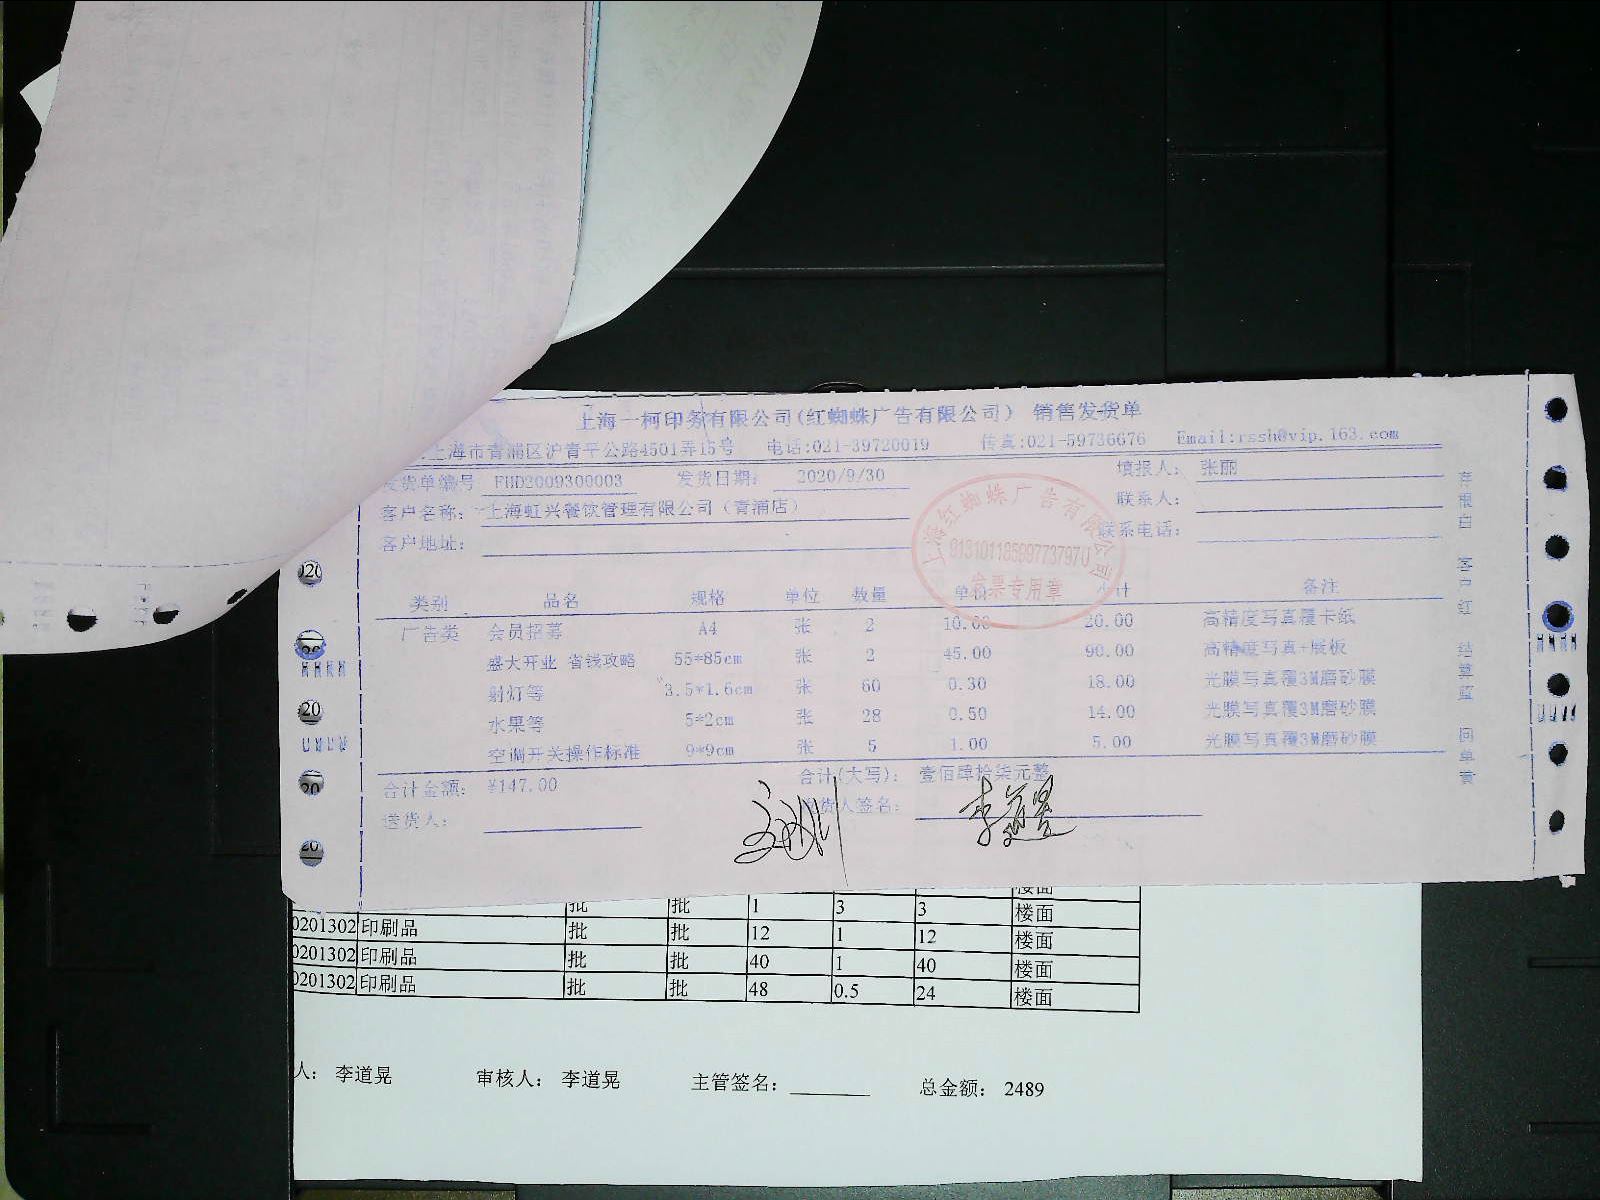 上海一柯印务有限公司(红蜘蛛广告有限公司) 销售发货单
上海市青浦区沪青平公路4501弄15号 电话:021-39720019 传真:021-59736676 Email:rssh@vip.163.com
发货单编号 FHD2009300003 发货日期: 2020/9/30 填报人: 张丽
客户名称: 上海虹兴餐饮管理有限公司(青浦店) 联系人:
客户地址: 联系电话:
上海红蜘蛛广告有限公司
91310118599773797U
发票专用章
类别 品名 规格 单位 数量 单价 小计 备注
广告类 会员招募 A4 张 2 10.00 20.00 高精度写真覆卡纸
盛大开业 省钱攻略 55*85cm 张 2 45.00 90.00 高精度写真+展板
射灯等 3.5*1.6cm 张 60 0.30 18.00 光膜写真覆3M磨砂膜
水果等 5*2cm 张 28 0.50 14.00 光膜写真覆3M磨砂膜
空调开关操作标准 9*9cm 张 5 1.00 5.00 光膜写真覆3M磨砂膜
合计金额: ¥147.00 合计(大写): 壹佰肆拾柒元整
送货人: 货人签名: 李道晃
存根白 客户红 结算蓝 回单黄
批 批 1 3 3 楼面
0201302 印刷品 批 批 12 1 12 楼面
0201302 印刷品 批 批 40 1 40 楼面
0201302 印刷品 批 批 48 0.5 24 楼面
人: 李道晃 审核人: 李道晃 主管签名: 总金额: 2489